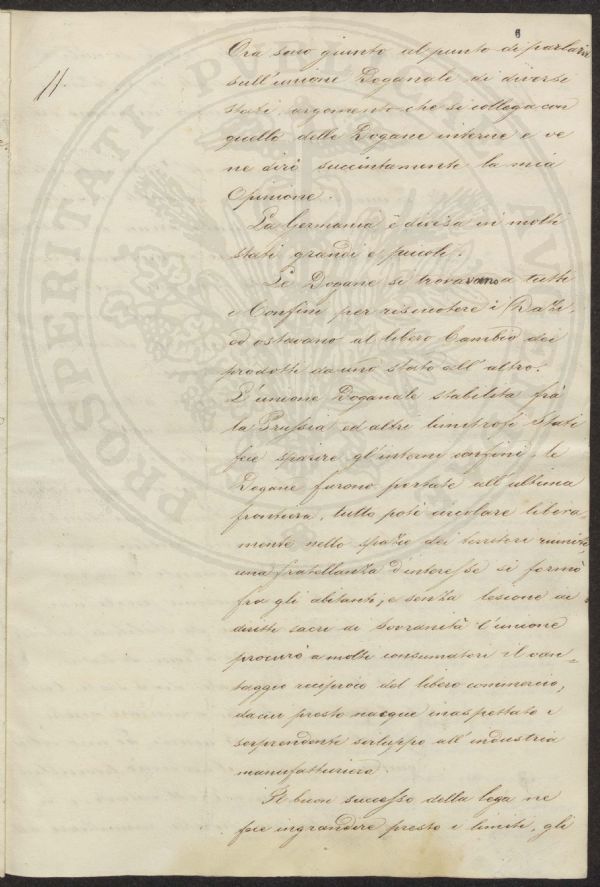 6
11.
Ora sono giunto al punto di parlarvi
sull'unione Doganale di diversi
stati, argomento che si collega con
quello delle Dogane interne e ve
ne dirò succintamente la mia
Opinione.
La Germania è divisa in molti
stati grandi e piccoli.
Le Dogane si trovavano a tutti
i Confini per riscuotere i Dazi,
ed ostavano al libero Cambio dei
prodotti da uno stato all'altro.
L'unione Doganale stabilita frà
la Prussia ed altri limitrofi Stati
fece sparire gl'interni confini, le
Dogane furono portate all'ultima
frontiera, tutto potè circolare libera-
mente nello spazio dei territori riuniti,
una fratellanza d'interesse si formò
fra gli abitanti, e senza lesione ai
diritti sacri di Sovranità l'unione
procurò a molti consumatori il van-
taggio reciproco del libero commercio,
da cui presto nacque inaspettato e
sorprendente sviluppo all'industria
manufatturiera.
Il buon successo della lega ne
fece ingrandire presto i limiti, gli
PROSPERITATI PUBLICAE AU